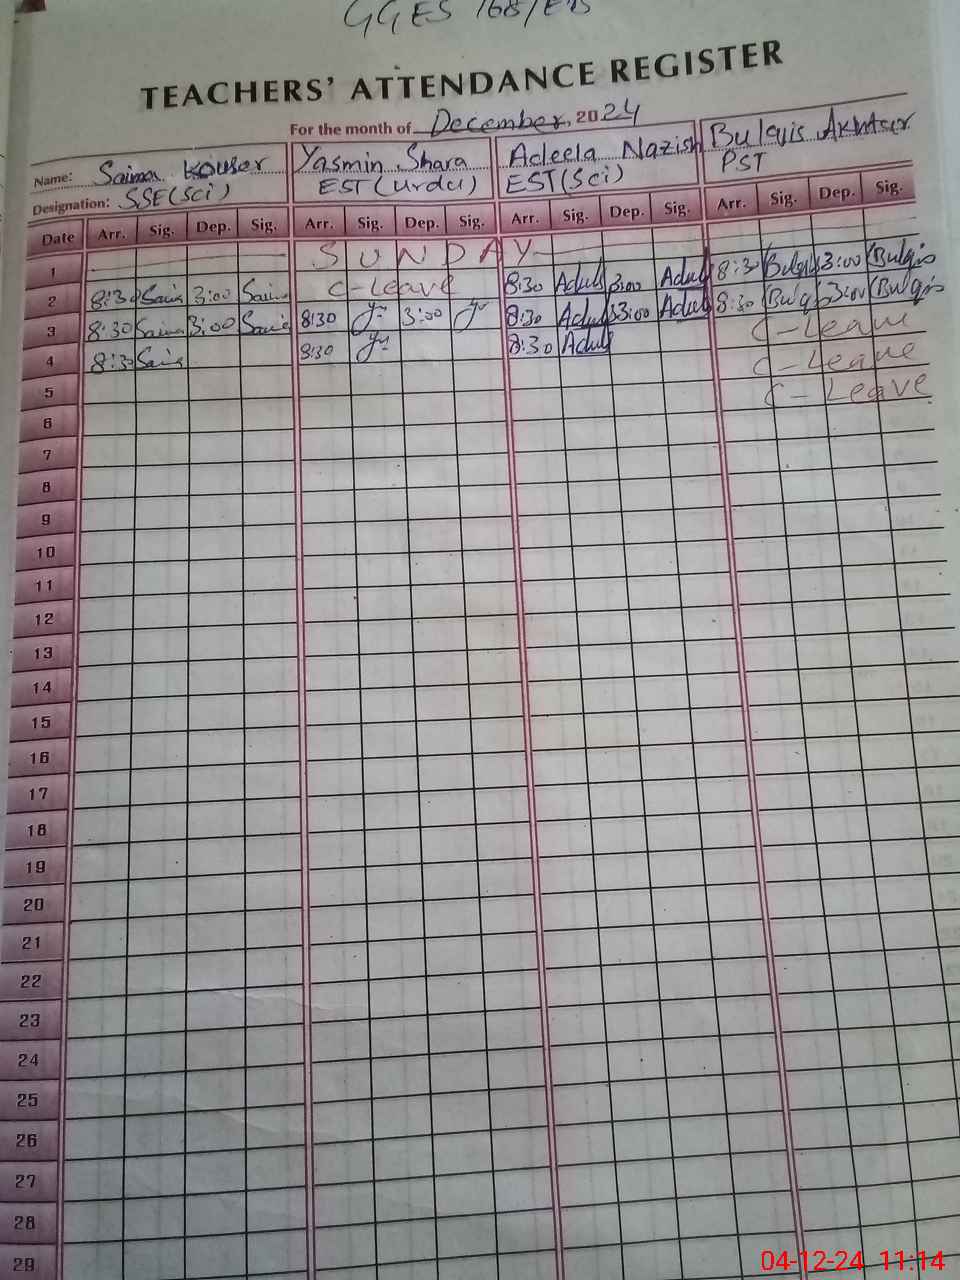 GGES 168/EB
TEACHERS' ATTENDANCE REGISTER
For the month of December, 2024
Name: Saima Kouser Yasmin Shara Adeela Nazish Bulqis Akhtar
Designation: SSE(Sci) EST(Urdu) EST(Sci) PST
Date Arr. Sig. Dep. Sig. Arr. Sig. Dep. Sig. Arr. Sig. Dep. Sig. Arr. Sig. Dep. Sig.
1 SUNDAY
2 8:30 Saima 3:00 Saima C-Leave 8:30 Adeel 3:00 Adeel 8:30 Bulqis 3:00 Bulqis
3 8:30 Saima 3:00 Saima 8:30 3:00 8:30 Adeel 3:00 Adeel 8:30 Bulqis 3:00 Bulqis
4 8:30 Saima 8:30 8:30 Adeel C-Leave
5 C-Leave
6 C-Leave
7
8
9
10
11
12
13
14
15
16
17
18
19
20
21
22
23
24
25
26
27
28
29
04-12-24 11:14